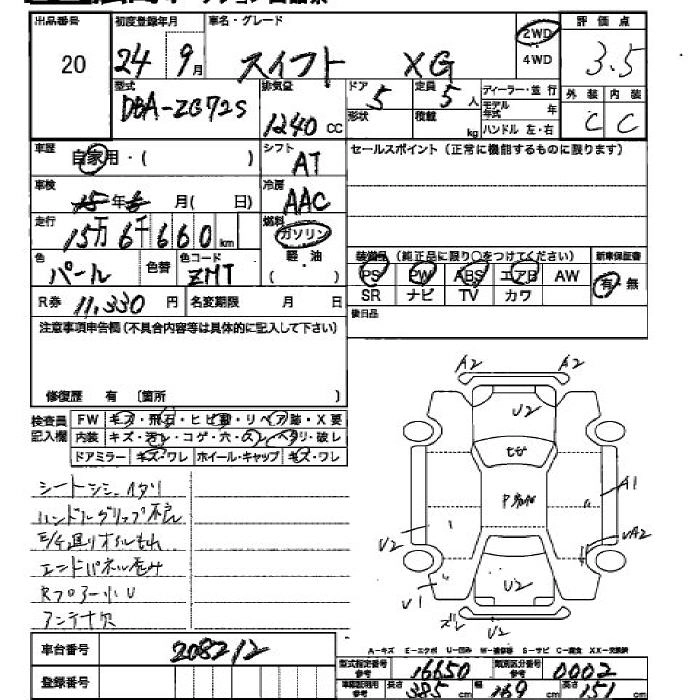 出品番号 初度登録年月 車名・グレード 評価点
20 24年 9月 スイフト XG 2WD 4WD 3.5
型式 DBA-ZC72S 排気量 1240 cc ドア 5 定員 5 人 ディーラー・並行 外装 内装
形状 積載 kg モデル年式 年 ハンドル 左・右 C C
車歴 自家用・( ) シフト AT セールスポイント(正常に機能するものに限ります)
車検 年 月( 日) 冷房 AAC
走行 15万6千660km 燃料 ガソリン 軽油 ( )
色 パール 色替 色コード ZMT
装備品(純正品に限り○をつけてください) 新車保証書
PS PW ABS エアB AW 有・無
SR ナビ TV カワ
R券 11,330 円 名変期限 月 日 後日品
注意事項申告欄(不具合内容等は具体的に記入して下さい)
修復歴 有 〔箇所 〕
検査員記入欄 FW キズ・飛石・ヒビ・リペア跡・X要
内装 キズ・汚レ・コゲ・穴・スレ・ヘタリ・破レ
ドアミラー キズ・ワレ ホイール・キャップ キズ・ワレ
シートシミ、ヘタリ
ハンドルグリップ不良
オイルもれ
エンドパネル歪み
RフロアーU
アンテナ欠
A2 A2
U2
A1
U2 A2
U1 U2
ズレ U2
車台番号 208212
登録番号
A-キズ E-エクボ U-凹み W-補修跡 S-サビ C-腐食 XX-交換済
型式指定番号 参考 16650 類別区分番号 参考 0002
車両証明用 参考 長さ 385 cm 幅 169 cm 高さ 151 cm